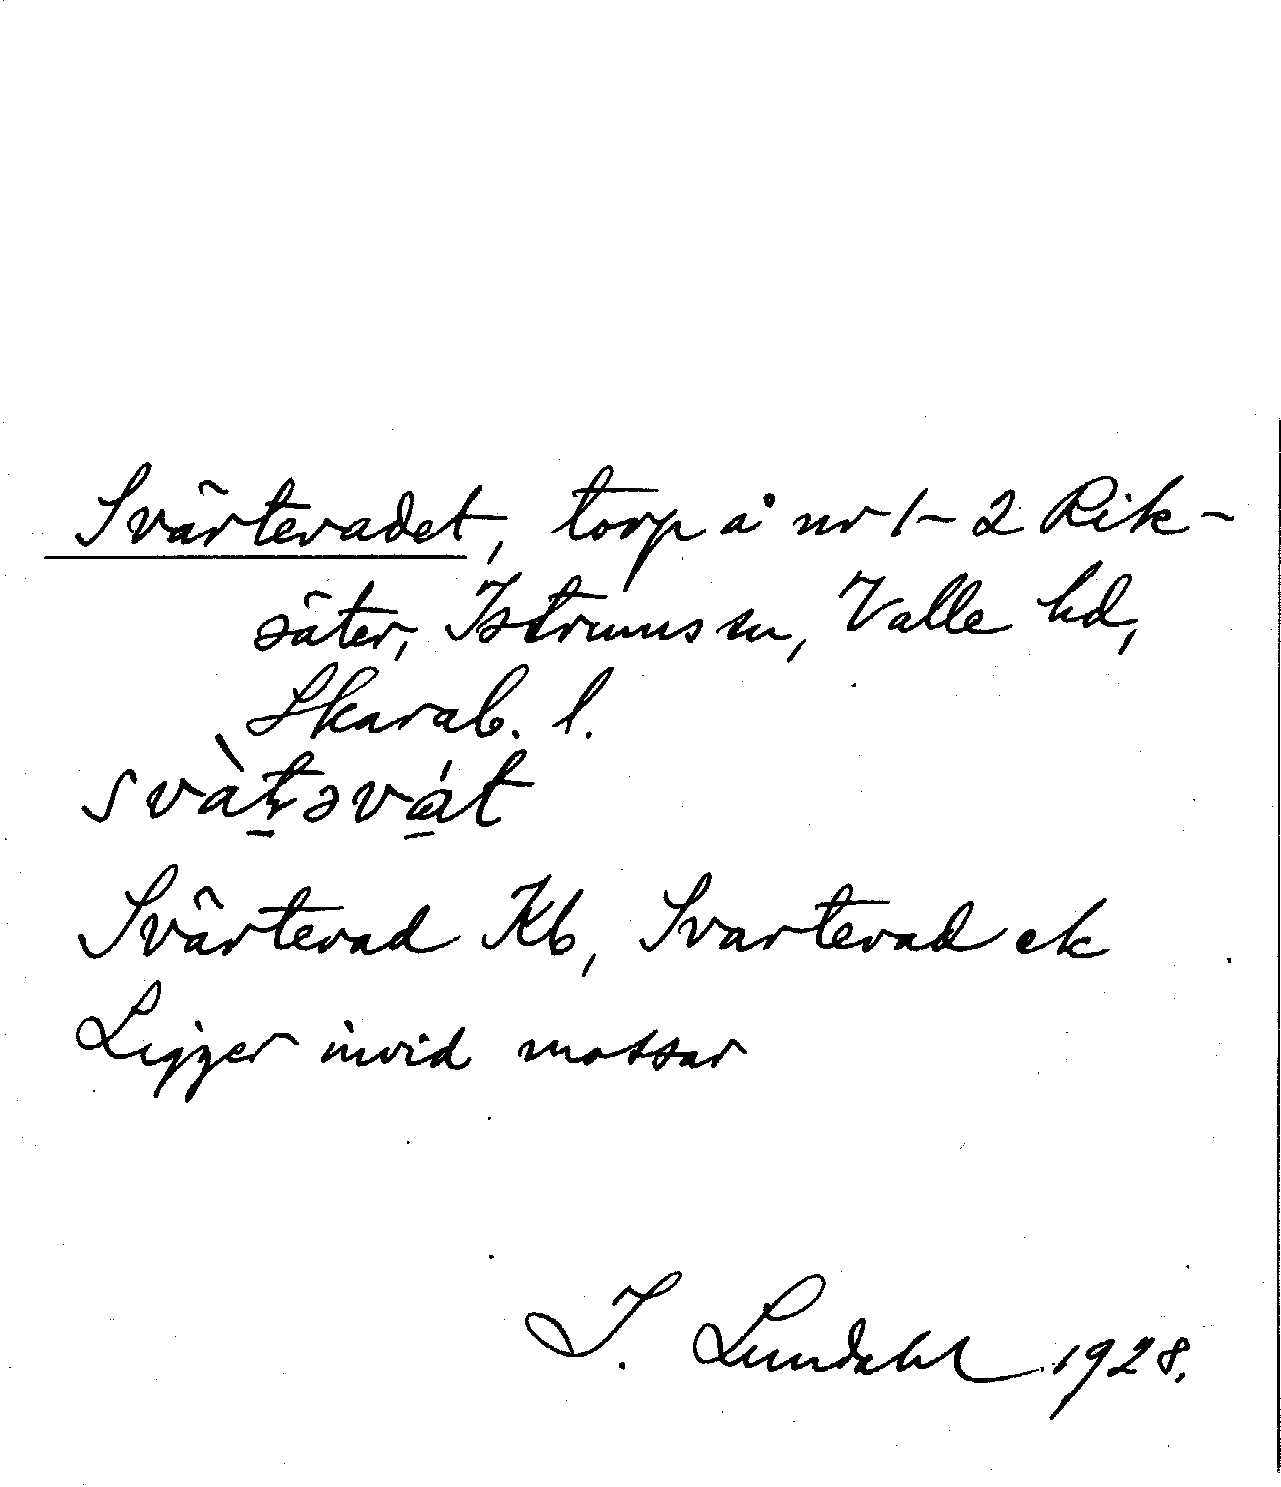 Svärtevadet, torp å nr 1-2 Rik-
säter, Istrums sn, Valle hd,
Skarab. l.
Svärtevad Kb, Svartevad ek
Ligger invid mossar
I. Lundahl 1928.